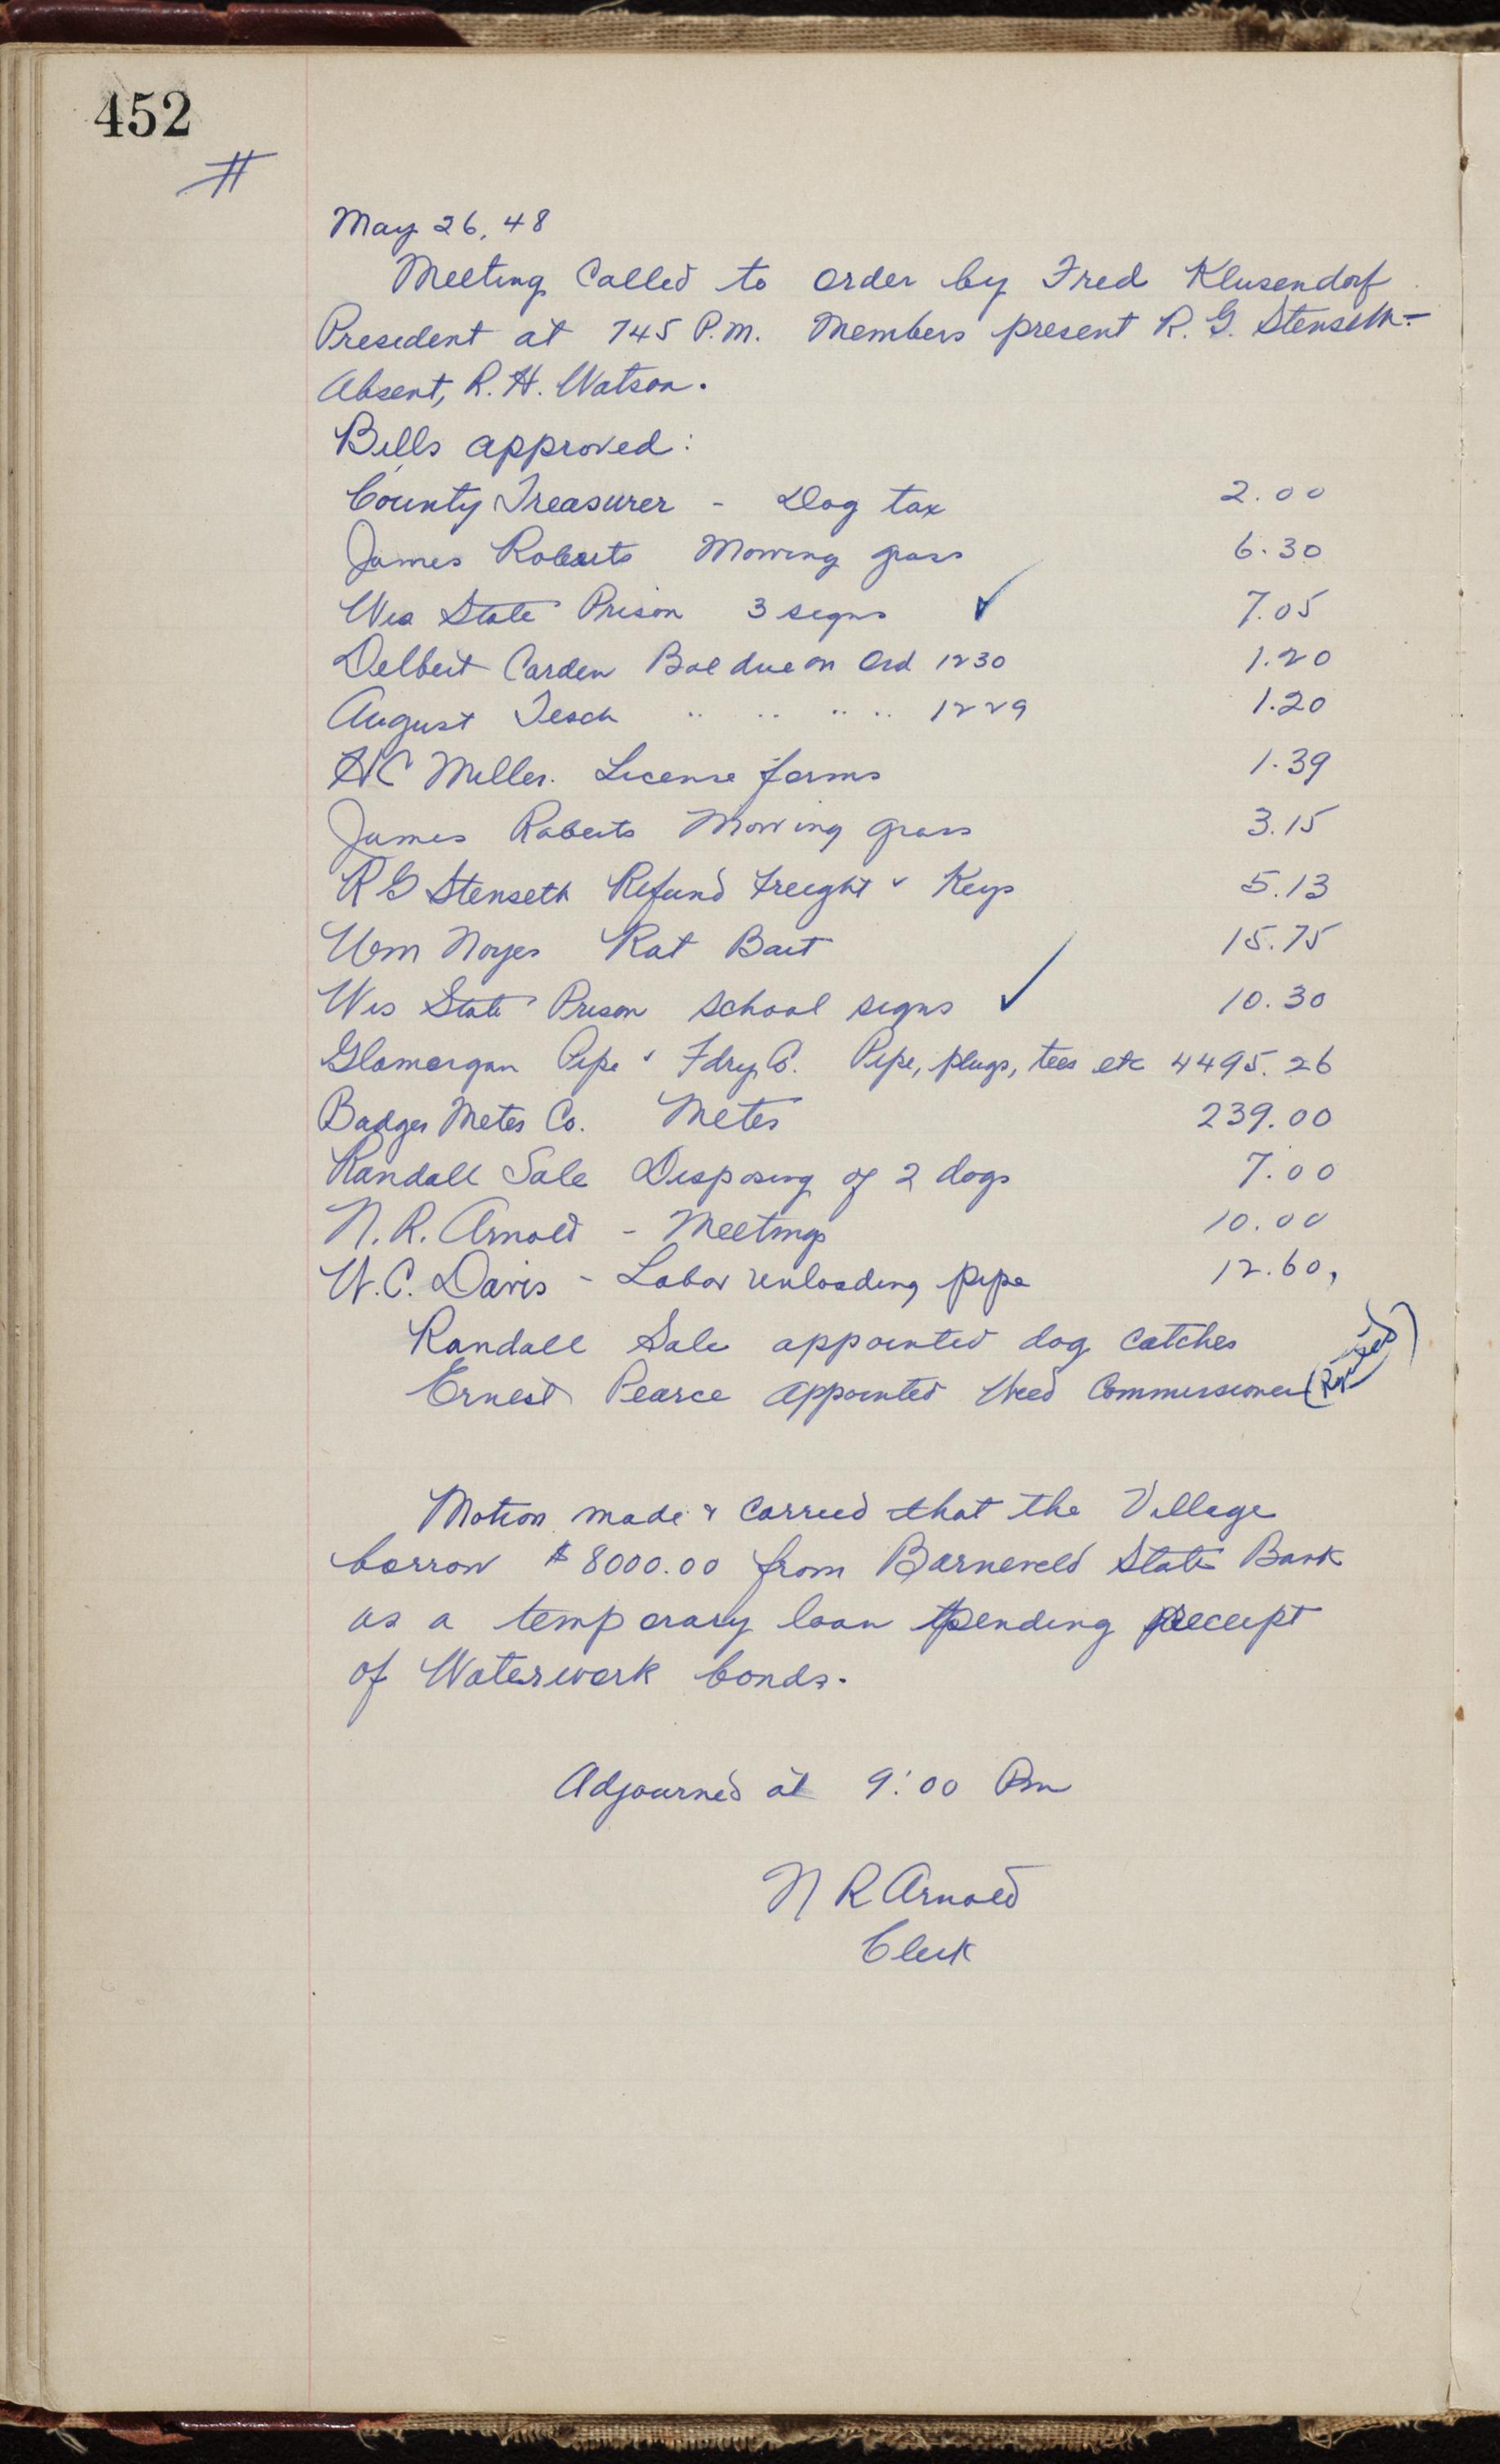 452
#
May 26, 48
Meeting Called to order by Fred Klusendorf
President at 745 P.M. Members present R. G. Stenseth -
Absent, R. H. Watson.
Bills approved:
County Treasurer - Dog tax 2.00
James Roberts Mowing grass 6.30
Wis State Prison 3 signs ✓ 7.05
Delbert Carden Bal due on Ord 1230 1.20
August Tesch " " " " 1229 1.20
HC Miller. License forms 1.39
James Roberts Mowing grass 3.15
R G Stenseth Refund Freight & Keys 5.13
Wm Noyes Rat Bait 15.75
Wis State Prison School signs ✓ 10.30
Glamorgan Pipe & Fdry Co. Pipe, plugs, tees etc 4495.26
Badger Meter Co. Meter 239.00
Randall Sale Disposing of 2 dogs 7.00
N. R. Arnold - Meetings 10.00
W. C. Davis - Labor unloading pipe 12.60,
Randall Sale appointed dog catcher
Ernest Pearce appointed Weed Commissioner
Motion made & carried that the Village
borrow $8000.00 from Barneveld State Bank
as a temporary loan pending receipt
of Waterwork bonds.
Adjourned at 9:00 Pm
N R Arnold
Clerk